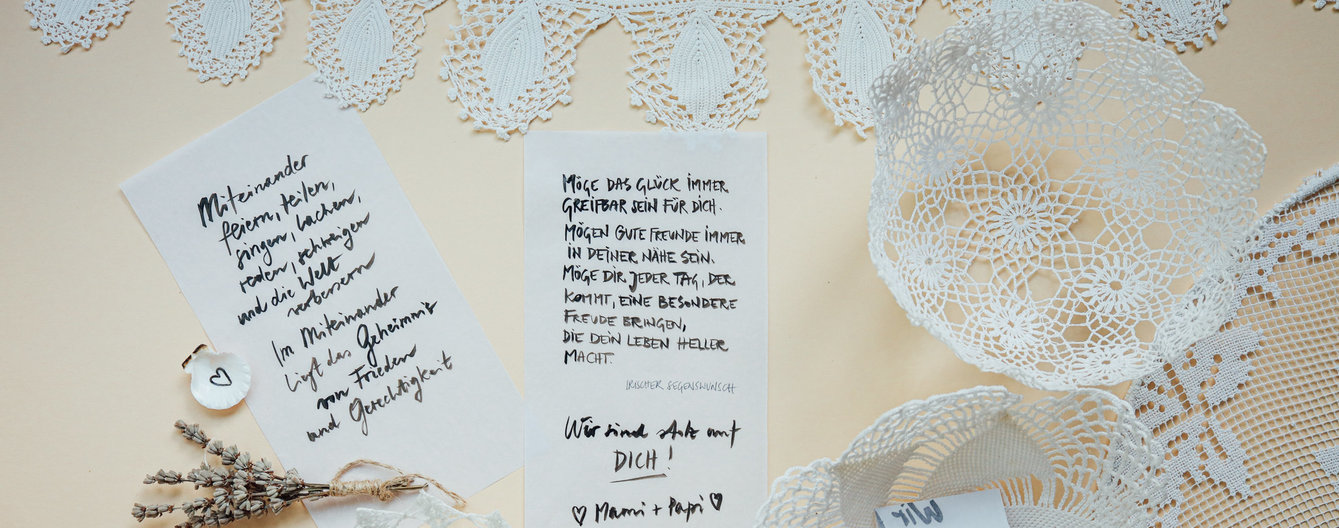 Miteinander
feiern, teilen,
singen, lachen,
reden, schweigen
und die Welt
verbessern
Im Miteinander
liegt das Geheimnis
von Frieden
und Gerechtigkeit
MÖGE DAS GLÜCK IMMER
GREIFBAR SEIN FÜR DICH.
MÖGEN GUTE FREUNDE IMMER
IN DEINER NÄHE SEIN.
MÖGE DIR JEDER TAG, DER
KOMMT, EINE BESONDERE
FREUDE BRINGEN,
DIE DEIN LEBEN HELLER
MACHT.
IRISCHER SEGENSWUNSCH
Wir sind stolz auf
DICH!
♡ Mami + Papi ♡
Wir